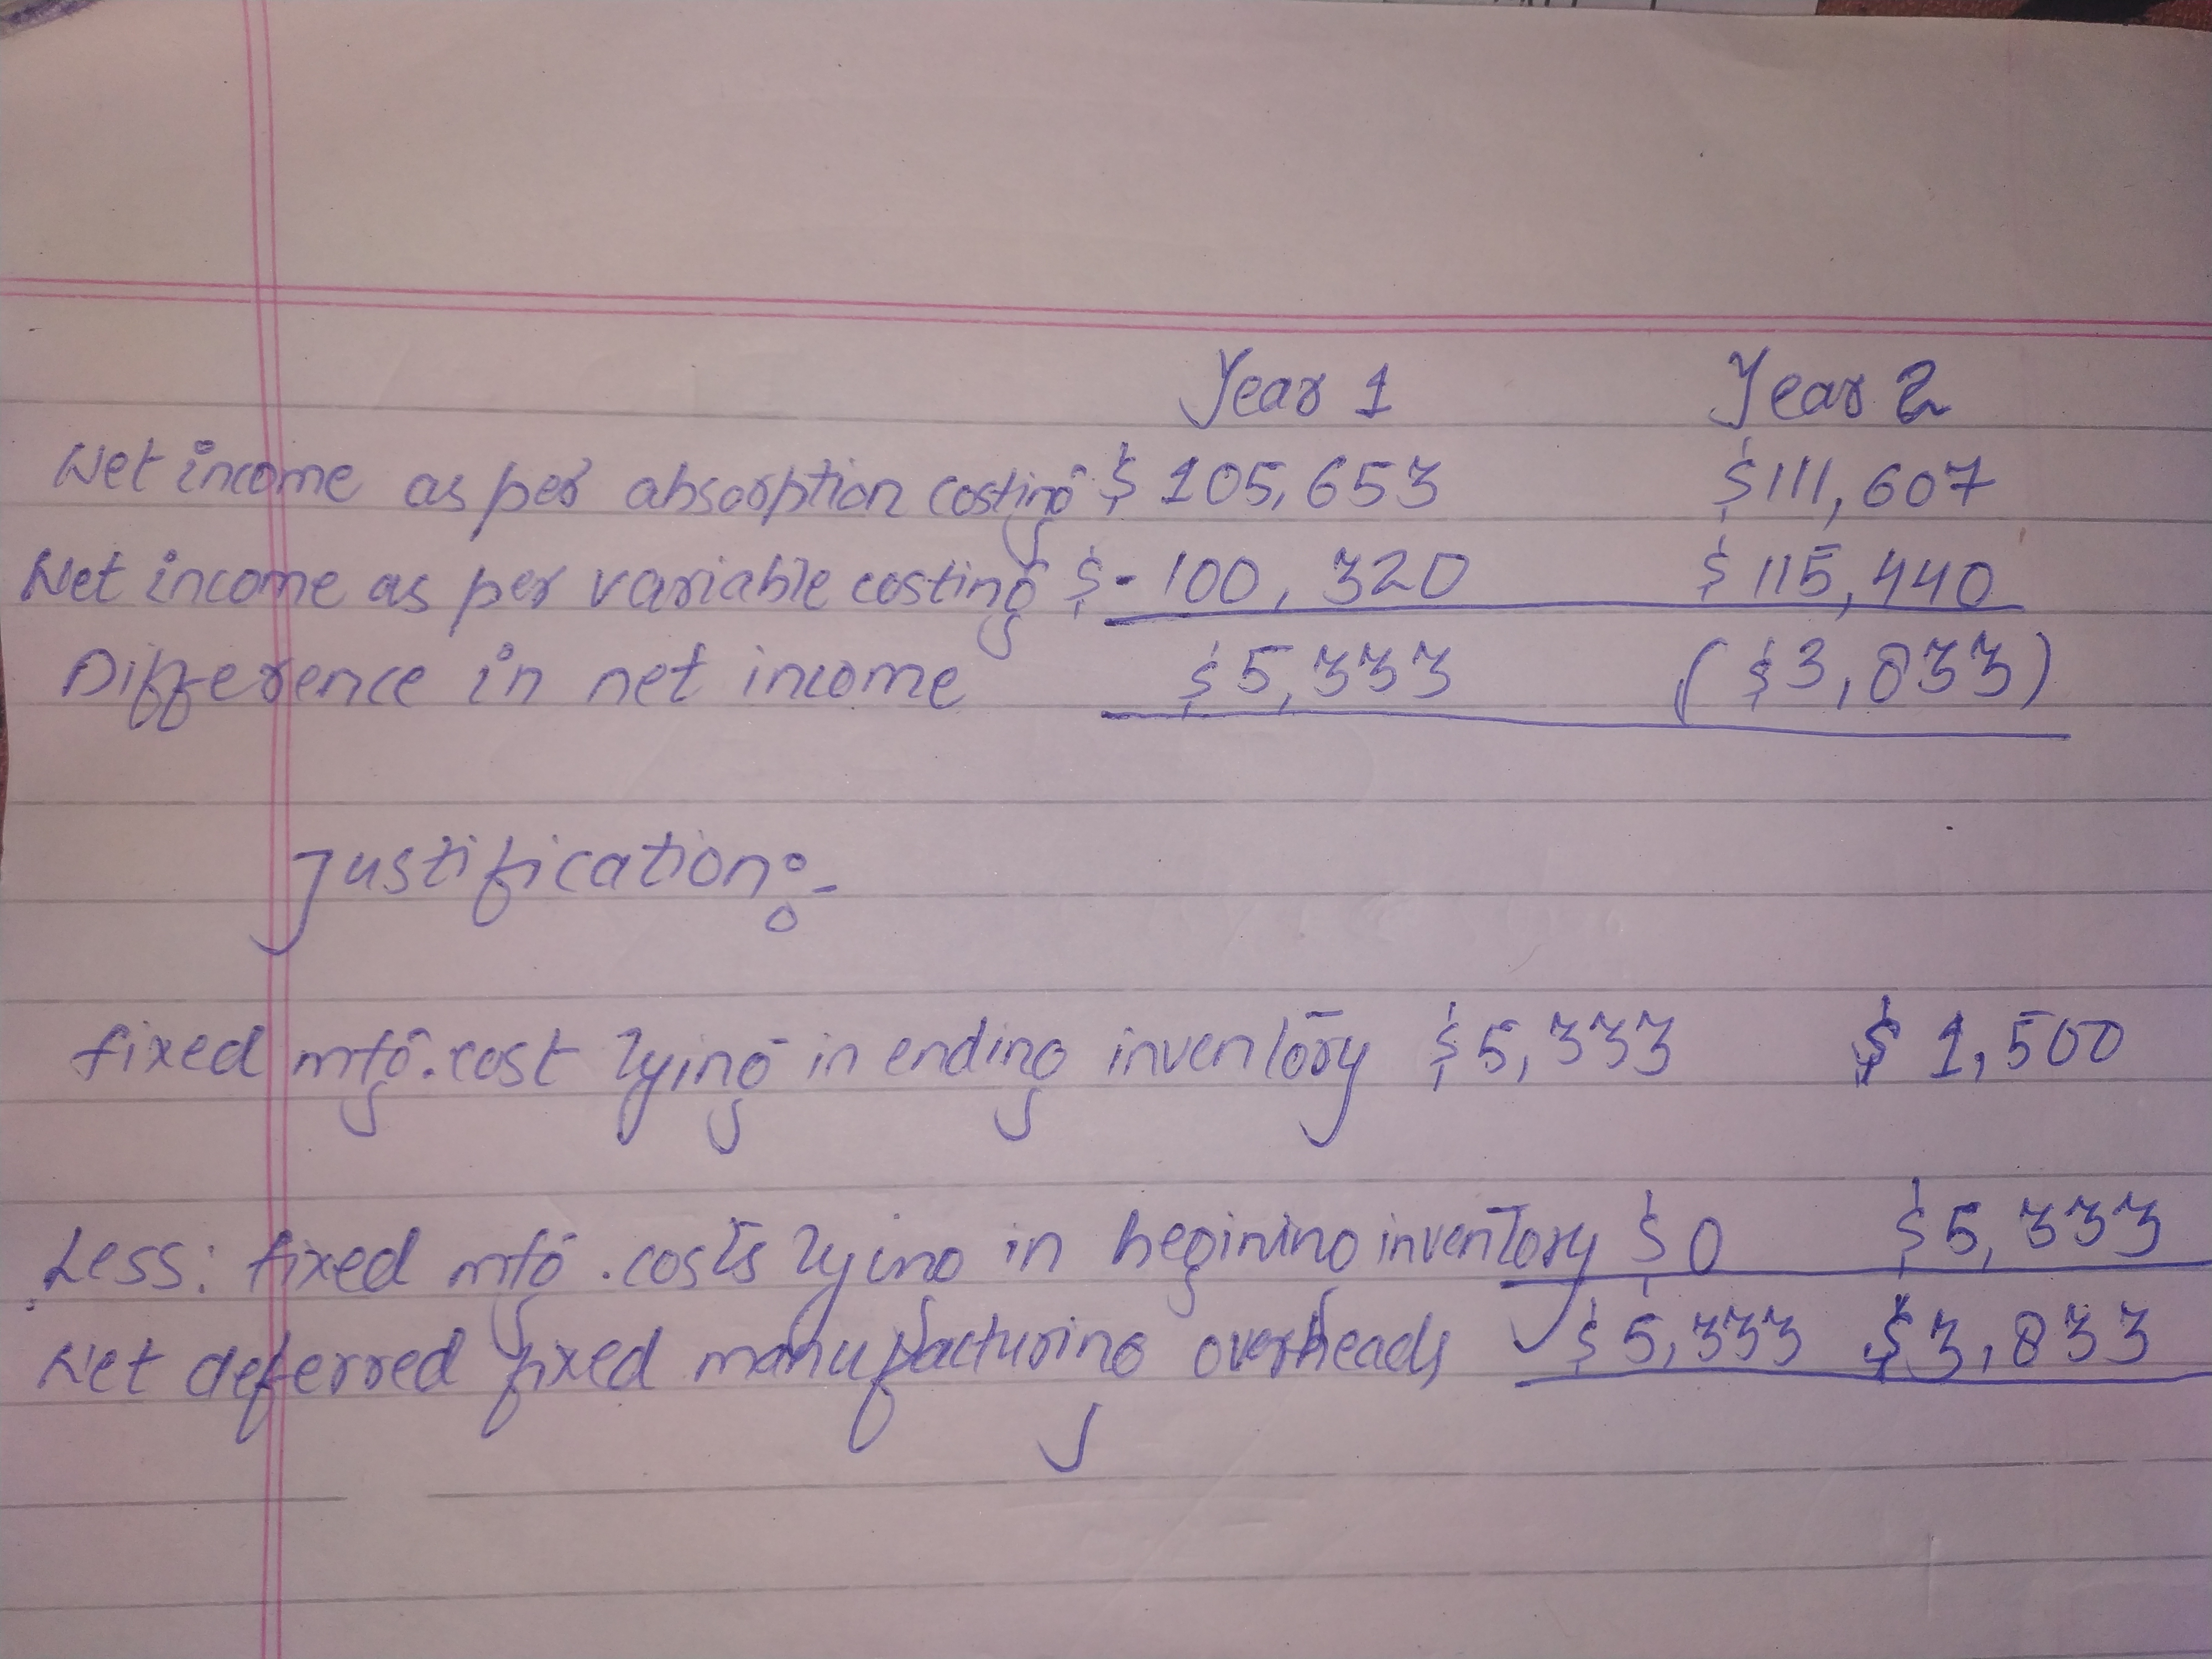 Year 1 Year 2
Net income as per absorption costing $ 105,653 $111,607
Net income as per variable costing $ - 100,320 $115,440
Difference in net income $5,333 ($3,833)
Justification:-
fixed mfg. cost lying in ending inventory $5,333 $ 1,500
Less: fixed mfg. costs lying in begining inventory $0 $5,333
Net deferred fixed manufacturing overheads $5,333 $3,833